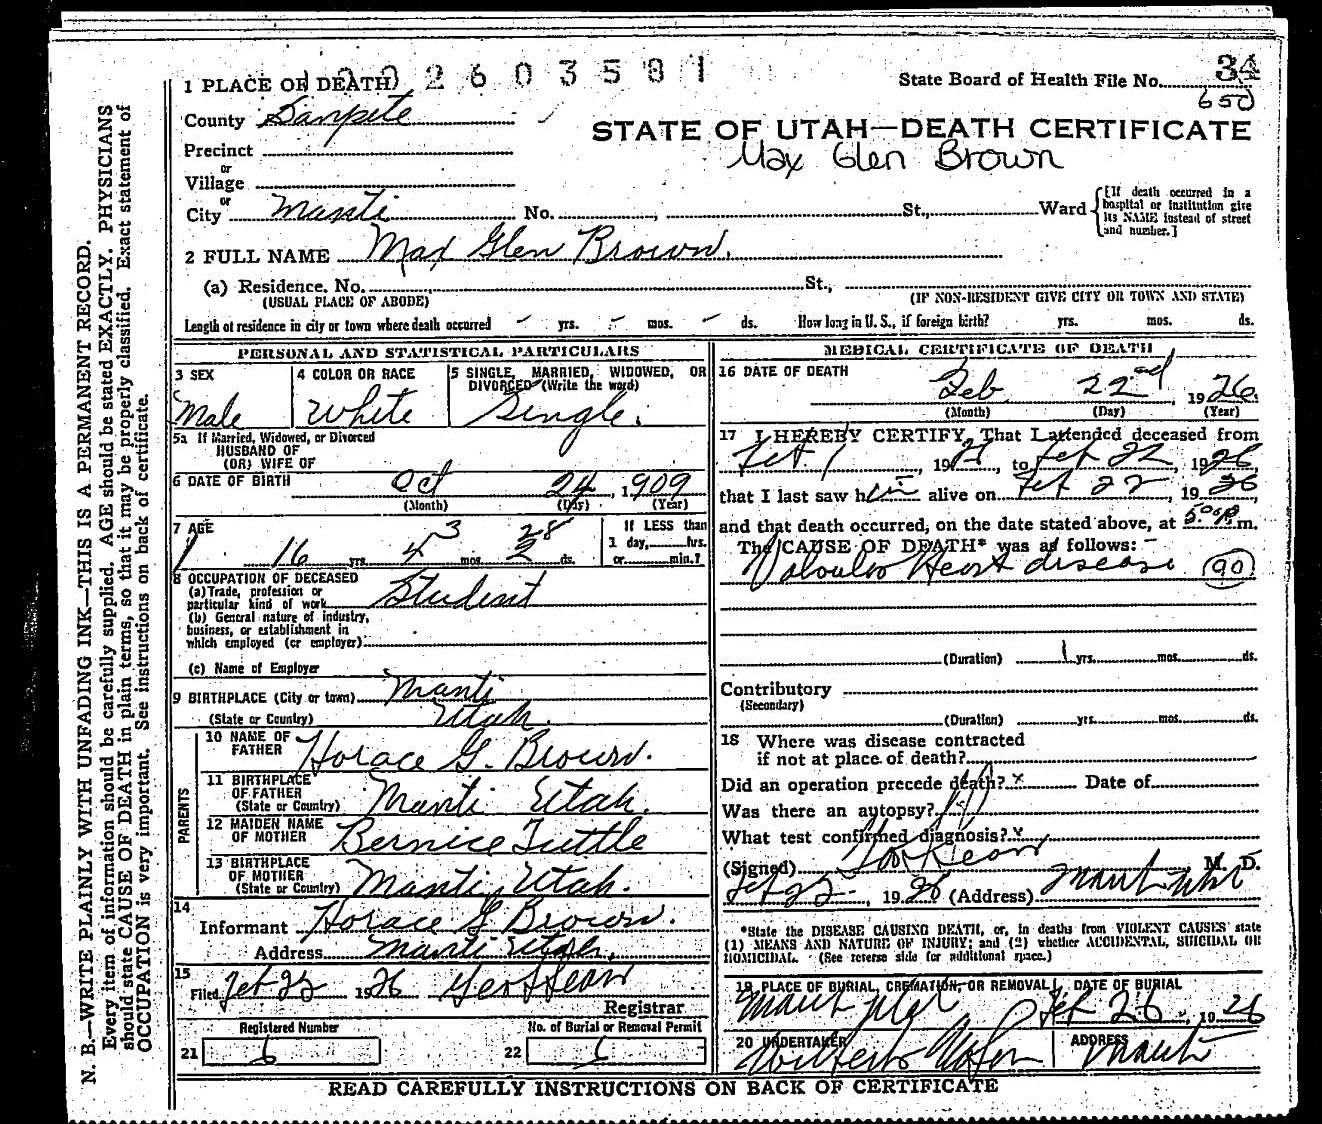 1 PLACE OF DEATH 2603581
State Board of Health File No. 34
650
County Sanpete
STATE OF UTAH—DEATH CERTIFICATE
Max Glen Brown
Precinct
or
Village
or
City Manti No. , St., Ward
[If death occurred in a
hospital or institution give
its NAME instead of street
and number.]
2 FULL NAME Max Glen Brown.
(a) Residence. No. St.,
(USUAL PLACE OF ABODE) (IF NON-RESIDENT GIVE CITY OR TOWN AND STATE)
Length of residence in city or town where death occurred – yrs. – mos. – ds. How long in U. S., if foreign birth? yrs. mos. ds.
PERSONAL AND STATISTICAL PARTICULARS
3 SEX
Male
4 COLOR OR RACE
White
5 SINGLE, MARRIED, WIDOWED, OR
DIVORCED (Write the word)
Single.
5a If Married, Widowed, or Divorced
HUSBAND OF
(OR) WIFE OF
6 DATE OF BIRTH Oct 24, 1909
(Month) (Day) (Year)
7 AGE
16 yrs. 4 3 mos. 2 28 ds.
If LESS than
1 day, hrs.
or min.?
8 OCCUPATION OF DECEASED
(a) Trade, profession or
particular kind of work Student
(b) General nature of industry,
business, or establishment in
which employed (or employer)
(c) Name of Employer
9 BIRTHPLACE (City or town) Manti
(State or Country) Utah.
PARENTS
10 NAME OF
FATHER Horace G. Brown.
11 BIRTHPLACE
OF FATHER
(State or Country) Manti Utah.
12 MAIDEN NAME
OF MOTHER Bernice Tuttle
13 BIRTHPLACE
OF MOTHER
(State or Country) Manti, Utah.
14
Informant Horace G Brown.
Address Manti Utah.
15
Filed Feb 25 1926
Registrar
Registered Number
21 6
No. of Burial or Removal Permit
22 6
MEDICAL CERTIFICATE OF DEATH
16 DATE OF DEATH
Feb 22nd, 1926.
(Month) (Day) (Year)
17 I HEREBY CERTIFY, That I attended deceased from
Feb 1, 19 , to Feb 22, 1926,
that I last saw him alive on Feb 22, 1926,
and that death occurred, on the date stated above, at 5 00 p m.
The CAUSE OF DEATH* was as follows:
Valvular Heart disease (90)
(Duration) 1 yrs. mos. ds.
Contributory
(Secondary)
(Duration) yrs. mos. ds.
18 Where was disease contracted
if not at place of death?
Did an operation precede death? x Date of
Was there an autopsy?
What test confirmed diagnosis? x
(Signed) M. D.
Feb 25, 1926 (Address) Manti Utah
*State the DISEASE CAUSING DEATH, or, in deaths from VIOLENT CAUSES state
(1) MEANS AND NATURE OF INJURY; and (2) whether ACCIDENTAL, SUICIDAL OR
HOMICIDAL. (See reverse side for additional space.)
19 PLACE OF BURIAL, CREMATION, OR REMOVAL
Manti Utah
DATE OF BURIAL
Feb 26, 1926
20 UNDERTAKER
ADDRESS
Manti
READ CAREFULLY INSTRUCTIONS ON BACK OF CERTIFICATE
N. B.—WRITE PLAINLY WITH UNFADING INK—THIS IS A PERMANENT RECORD.
Every item of information should be carefully supplied. AGE should be stated EXACTLY. PHYSICIANS
should state CAUSE OF DEATH in plain terms, so that it may be properly classified. Exact statement of
OCCUPATION is very important. See instructions on back of certificate.